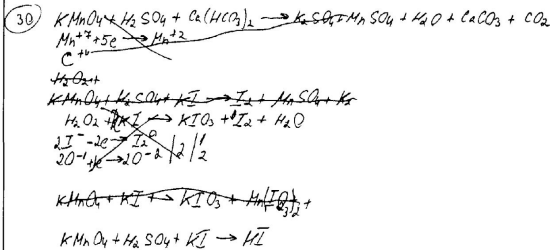 30 KMnO4 + H2SO4 + Ca(HCO3)2 → K2SO4 + MnSO4 + H2O + CaCO3 + CO2
Mn+7 + 5e → Mn+2
C+4
H2O2 +
KMnO4 + H2SO4 + KI → I2 + MnSO4 + K2
H2O2 + KI → KIO3 + I2 + H2O
2I- -2e → I2 0
2O-1 +e → 2O-2 | 2 | 1 2
KMnO4 + KI → KIO3 + Mn(IO3)2 +
KMnO4 + H2SO4 + KI → HI